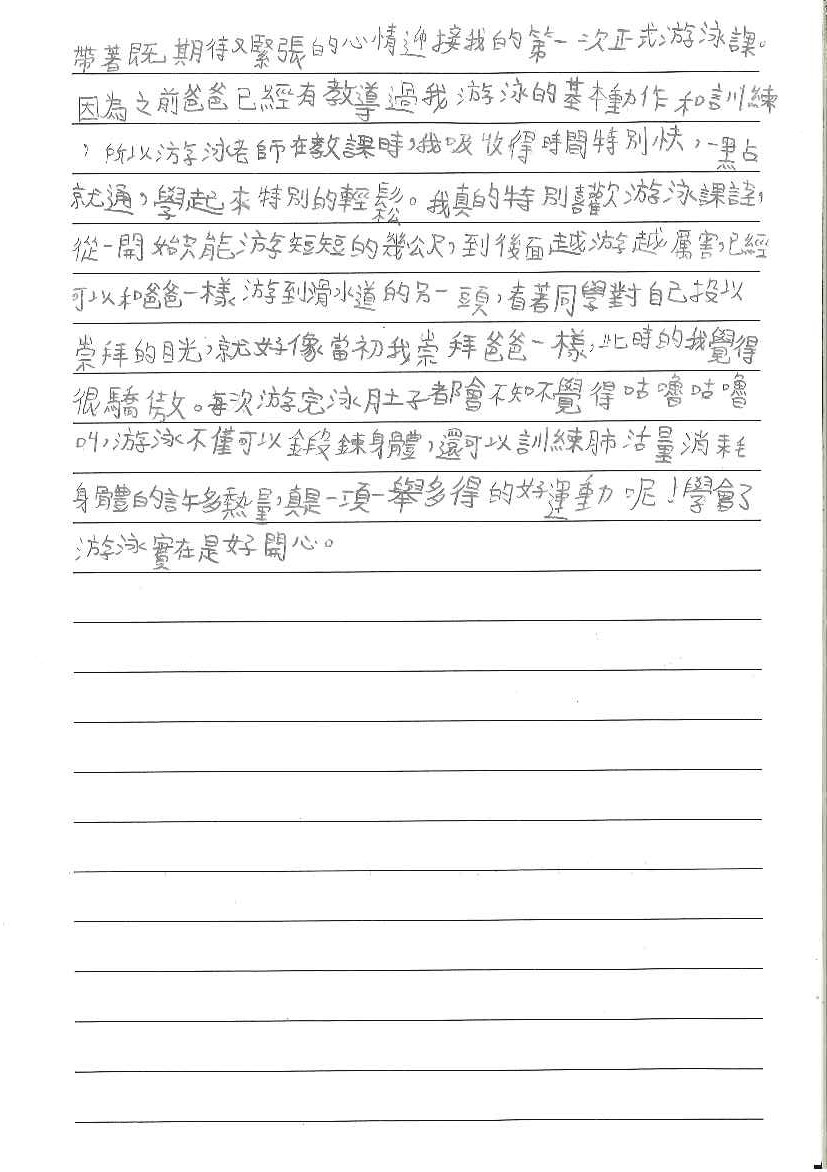 帶著既期待又緊張的心情迎接我的第一次正式游泳課。
因為之前爸爸已經有教導過我游泳的基本動作和訓練
，所以游泳老師在教課時，我吸收得時間特別快，一點
就通，學起來特別的輕鬆。我真的特別喜歡游泳課詿，
從一開始只能游短短的幾公尺，到後面越游越厲害，已經
可以和爸爸一樣游到滑水道的另一頭，看著同學對自己投以
崇拜的目光，就好像當初我崇拜爸爸一樣，此時的我覺得
很驕傲。每次游完泳肚子都會不知不覺得咕嚕咕嚕
叫，游泳不僅可以鍛鍊身體，還可以訓練肺活量消耗
身體的許多熱量，真是一項一舉多得的好運動呢！學會了
游泳實在是好開心。